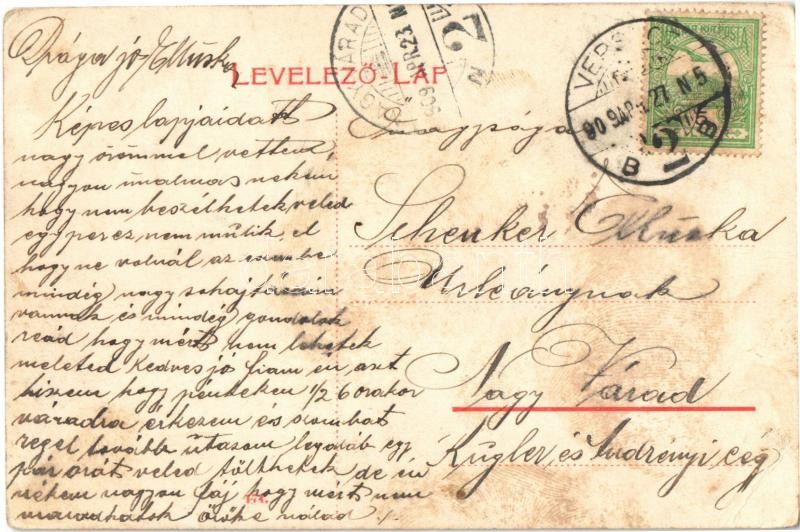 Drága jó Elluska
LEVELEZŐ-LAP
Képes lapjaidat
nagy örömmel vettem,
nagyon unalmas nekem
hogy nem beszélhetek veled
egy percz nem múlik el
hogy ne volnál az eszembe
mindég nagy sohajtásaim
vannak és mindég gondolok
reád hogy mért nem lehetek
meleted kedves jó fiam én azt
hiszem hogy pénteken 1/2 6 orakor
váradra érkezem és szombat
regel tovább utazom legaláb egy
pár orát veled tölthetek de én
nékem nagyon fáj hogy mért nem
maradhatok örökre nálad
Nagysága
Schenker Elluska
Urleánynak
Nagy Várad
Kugler és Andrényi cég